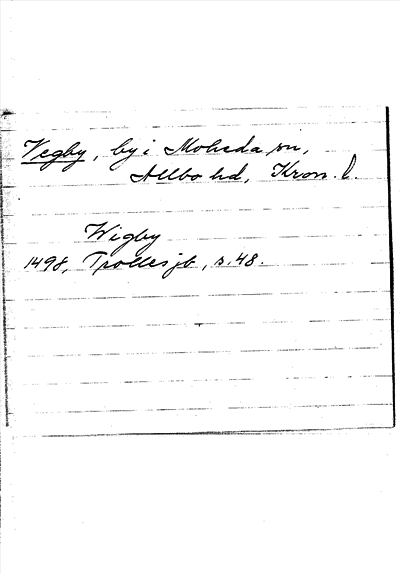 Vegby, by i Moheda sn,
Allbo hd, Kron. l.
Wigby
1498, Trolles jb, s. 48.